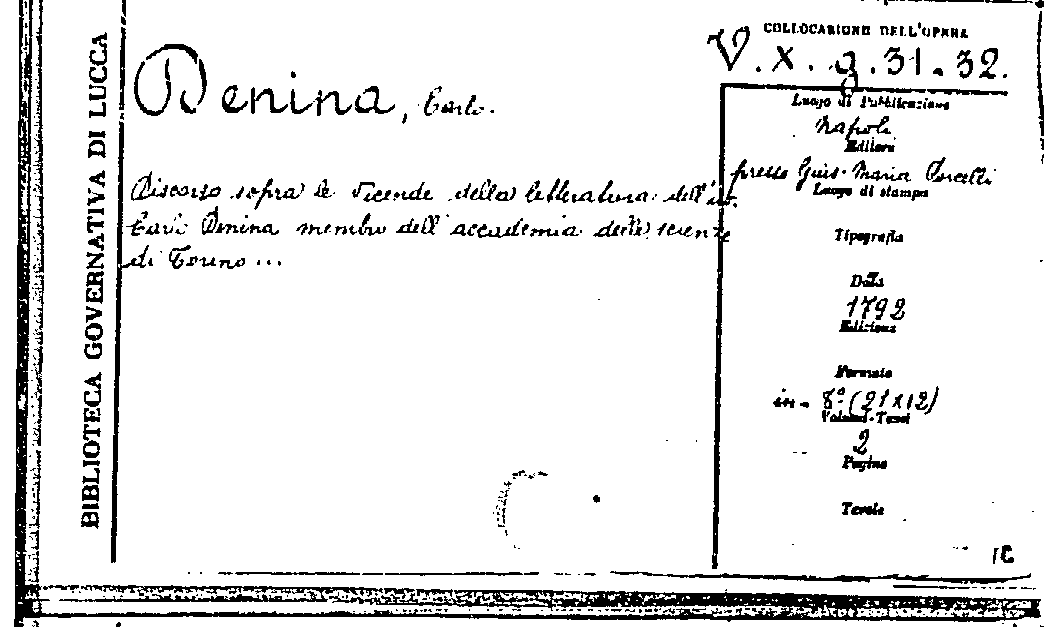 BIBLIOTECA GOVERNATIVA DI LUCCA
Denina, Carlo.
Discorso sopra le Vicende della letteratura dell'ab.
Carlo Denina membro dell'accademia delle scienze
di Torino ...
COLLOCAZIONE DELL'OPERA
V. X. g. 31. 32.
Luogo di Pubblicazione
Napoli
Editore
presso Gius. Maria Porcelli
Luogo di stampa
Tipografia
Data
1792
Edizione
Formato
in - 8º (21x12)
Volumi-Tomi
2
Pagine
Tavole